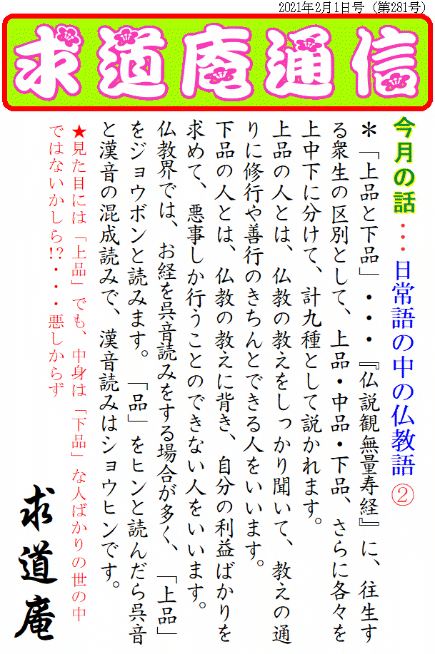 2021年2月1日号（第281号）
求道庵通信
今月の話…日常語の中の仏教語②
＊「上品と下品」・・・『仏説観無量寿経』に、往生す
る衆生の区別として、上品・中品・下品、さらに各々を
上中下に分けて、計九種として説かれます。
上品の人とは、仏教の教えをしっかり聞いて、教えの通
りに修行や善行のきちんとできる人をいいます。
下品の人とは、仏教の教えに背き、自分の利益ばかりを
求めて、悪事しか行うことのできない人をいいます。
仏教界では、お経を呉音読みをする場合が多く、「上品」
をジョウボンと読みます。「品」をヒンと読んだら呉音
と漢音の混成読みで、漢音読みはショウヒンです。
★見た目には「上品」でも、中身は「下品」な人ばかりの世の中
ではないかしら!?・・・悪しからず
求道庵